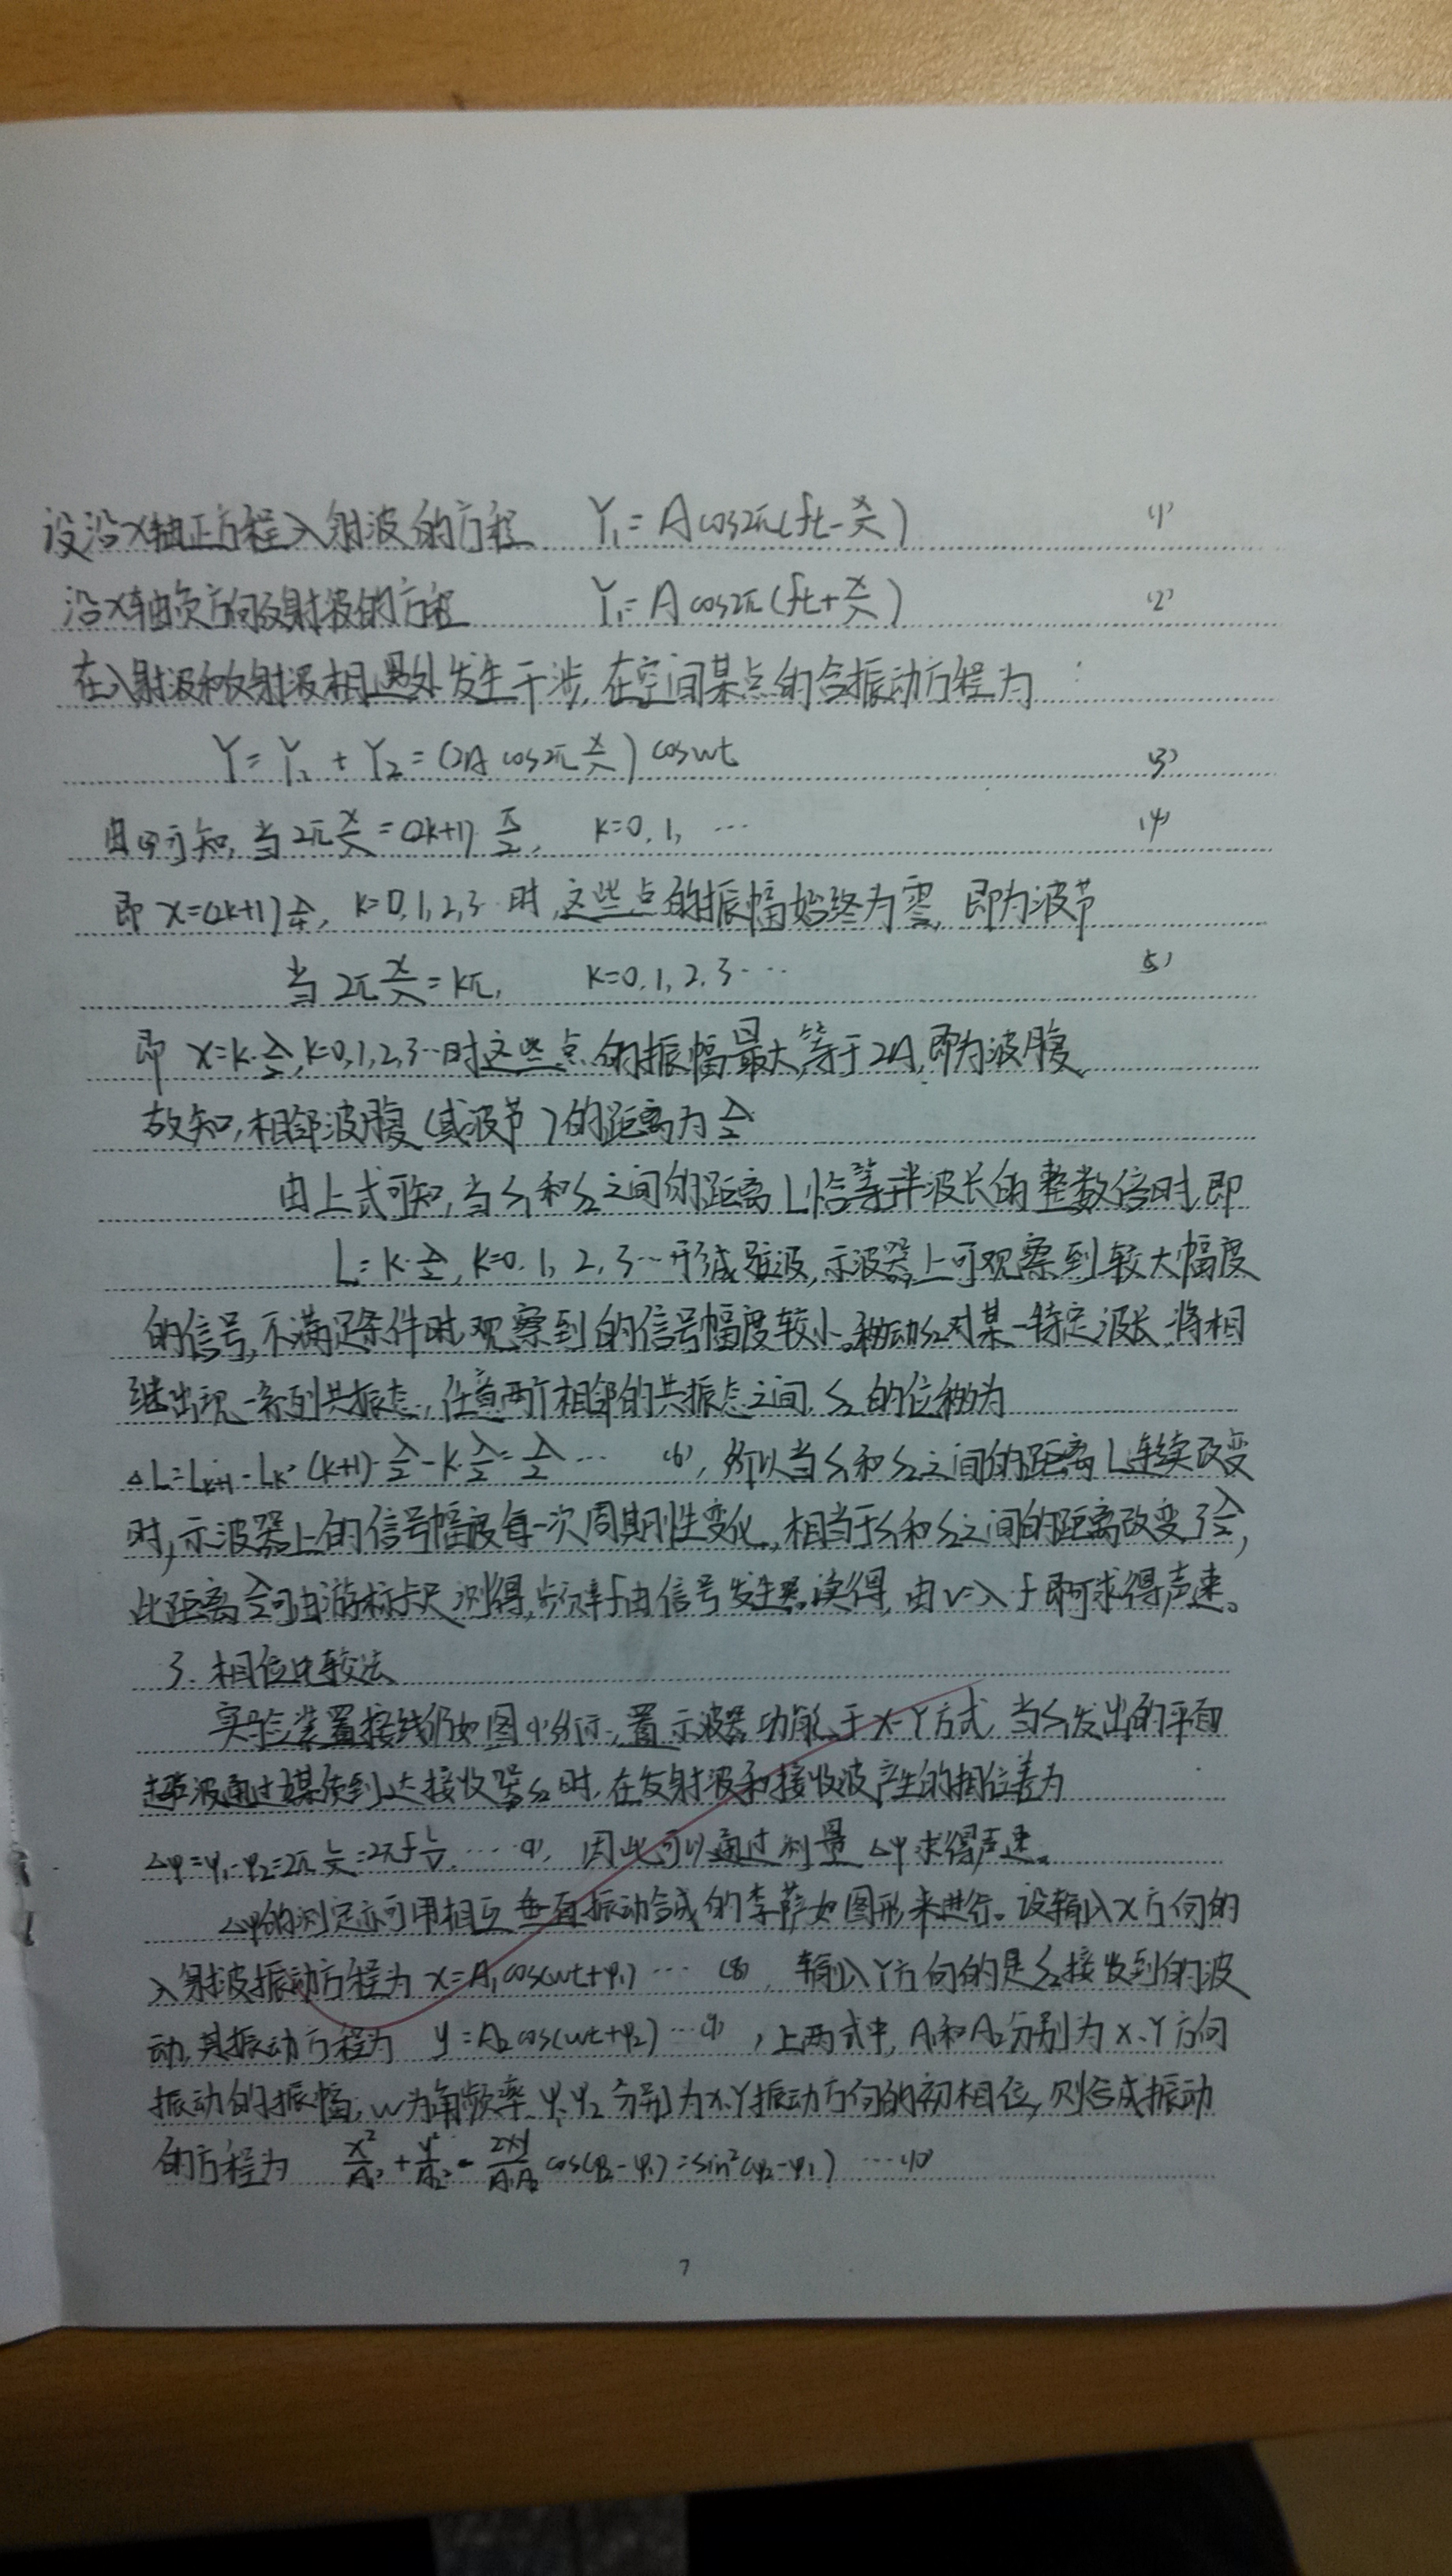 设沿x轴正方程入射波的方程 Y₁=Acos2π(ft-x/λ) (1)
沿x轴负方向反射波的方程 Y₁=Acos2π(ft+x/λ) (2)
在入射波和反射波相遇处发生干涉,在空间某点的合振动方程为:
Y=Y₁+Y₂=(2Acos2πx/λ)coswt (3)
由(4)可知,当2πx/λ=(2k+1)π/2, k=0,1,… (4)
即x=(2k+1)λ/4, k=0,1,2,3…时,这些点的振幅始终为零,即为波节
当2πx/λ=kπ, k=0,1,2,3… (5)
即 x=k·λ/2,k=0,1,2,3…时这些点的振幅最大,等于2A,即为波腹
故知,相邻波腹(或波节)的距离为λ/2
由上式可知,当S₁和S₂之间的距离L恰等于半波长的整数倍时,即
L=k·λ/2,k=0,1,2,3…形成驻波,示波器上可观察到较大幅度
的信号,不满足条件时,观察到的信号幅度较小。移动S₂对某一特定波长,将相
继出现一系列共振态,任意两个相邻的共振态之间,S₂的位移为
△L=Lₖ₊₁-Lₖ=(k+1)·λ/2-k·λ/2=λ/2… (6),所以当S₁和S₂之间的距离L连续改变
时,示波器上的信号幅度每一次周期性变化,相当于S₁和S₂之间的距离改变了λ/2,
此距离λ/2可由游标卡尺测得,频率f由信号发生器读得,由v=λf即可求得声速。
3.相位比较法
实验装置接线仍如图(1)所示,置示波器功能于X-Y方式,当S₁发出的平面
超声波通过媒质到达接收器S₂时,在发射波和接收波产生的相位差为
△φ=φ₁-φ₂=2πL/λ=2πfL/v.…(7),因此可以通过测量△φ求得声速。
△φ的测定亦可用相互垂直振动合成的李萨如图形来进行。设输入X方向的
入射波振动方程为x=A₁cos(wt+φ₁)…(8),输入Y方向的是S₂接收到的波
动,其振动方程为 y=A₂cos(wt+φ₂)…(9),上两式中,A₁和A₂分别为X、Y方向
振动的振幅,w为角频率,φ₁、φ₂分别为X、Y振动方向的初相位,则合成振动
的方程为 x²/A₁²+y²/A₂²-2xy/A₁A₂cos(φ₂-φ₁)=sin²(φ₂-φ₁) …(10)
7